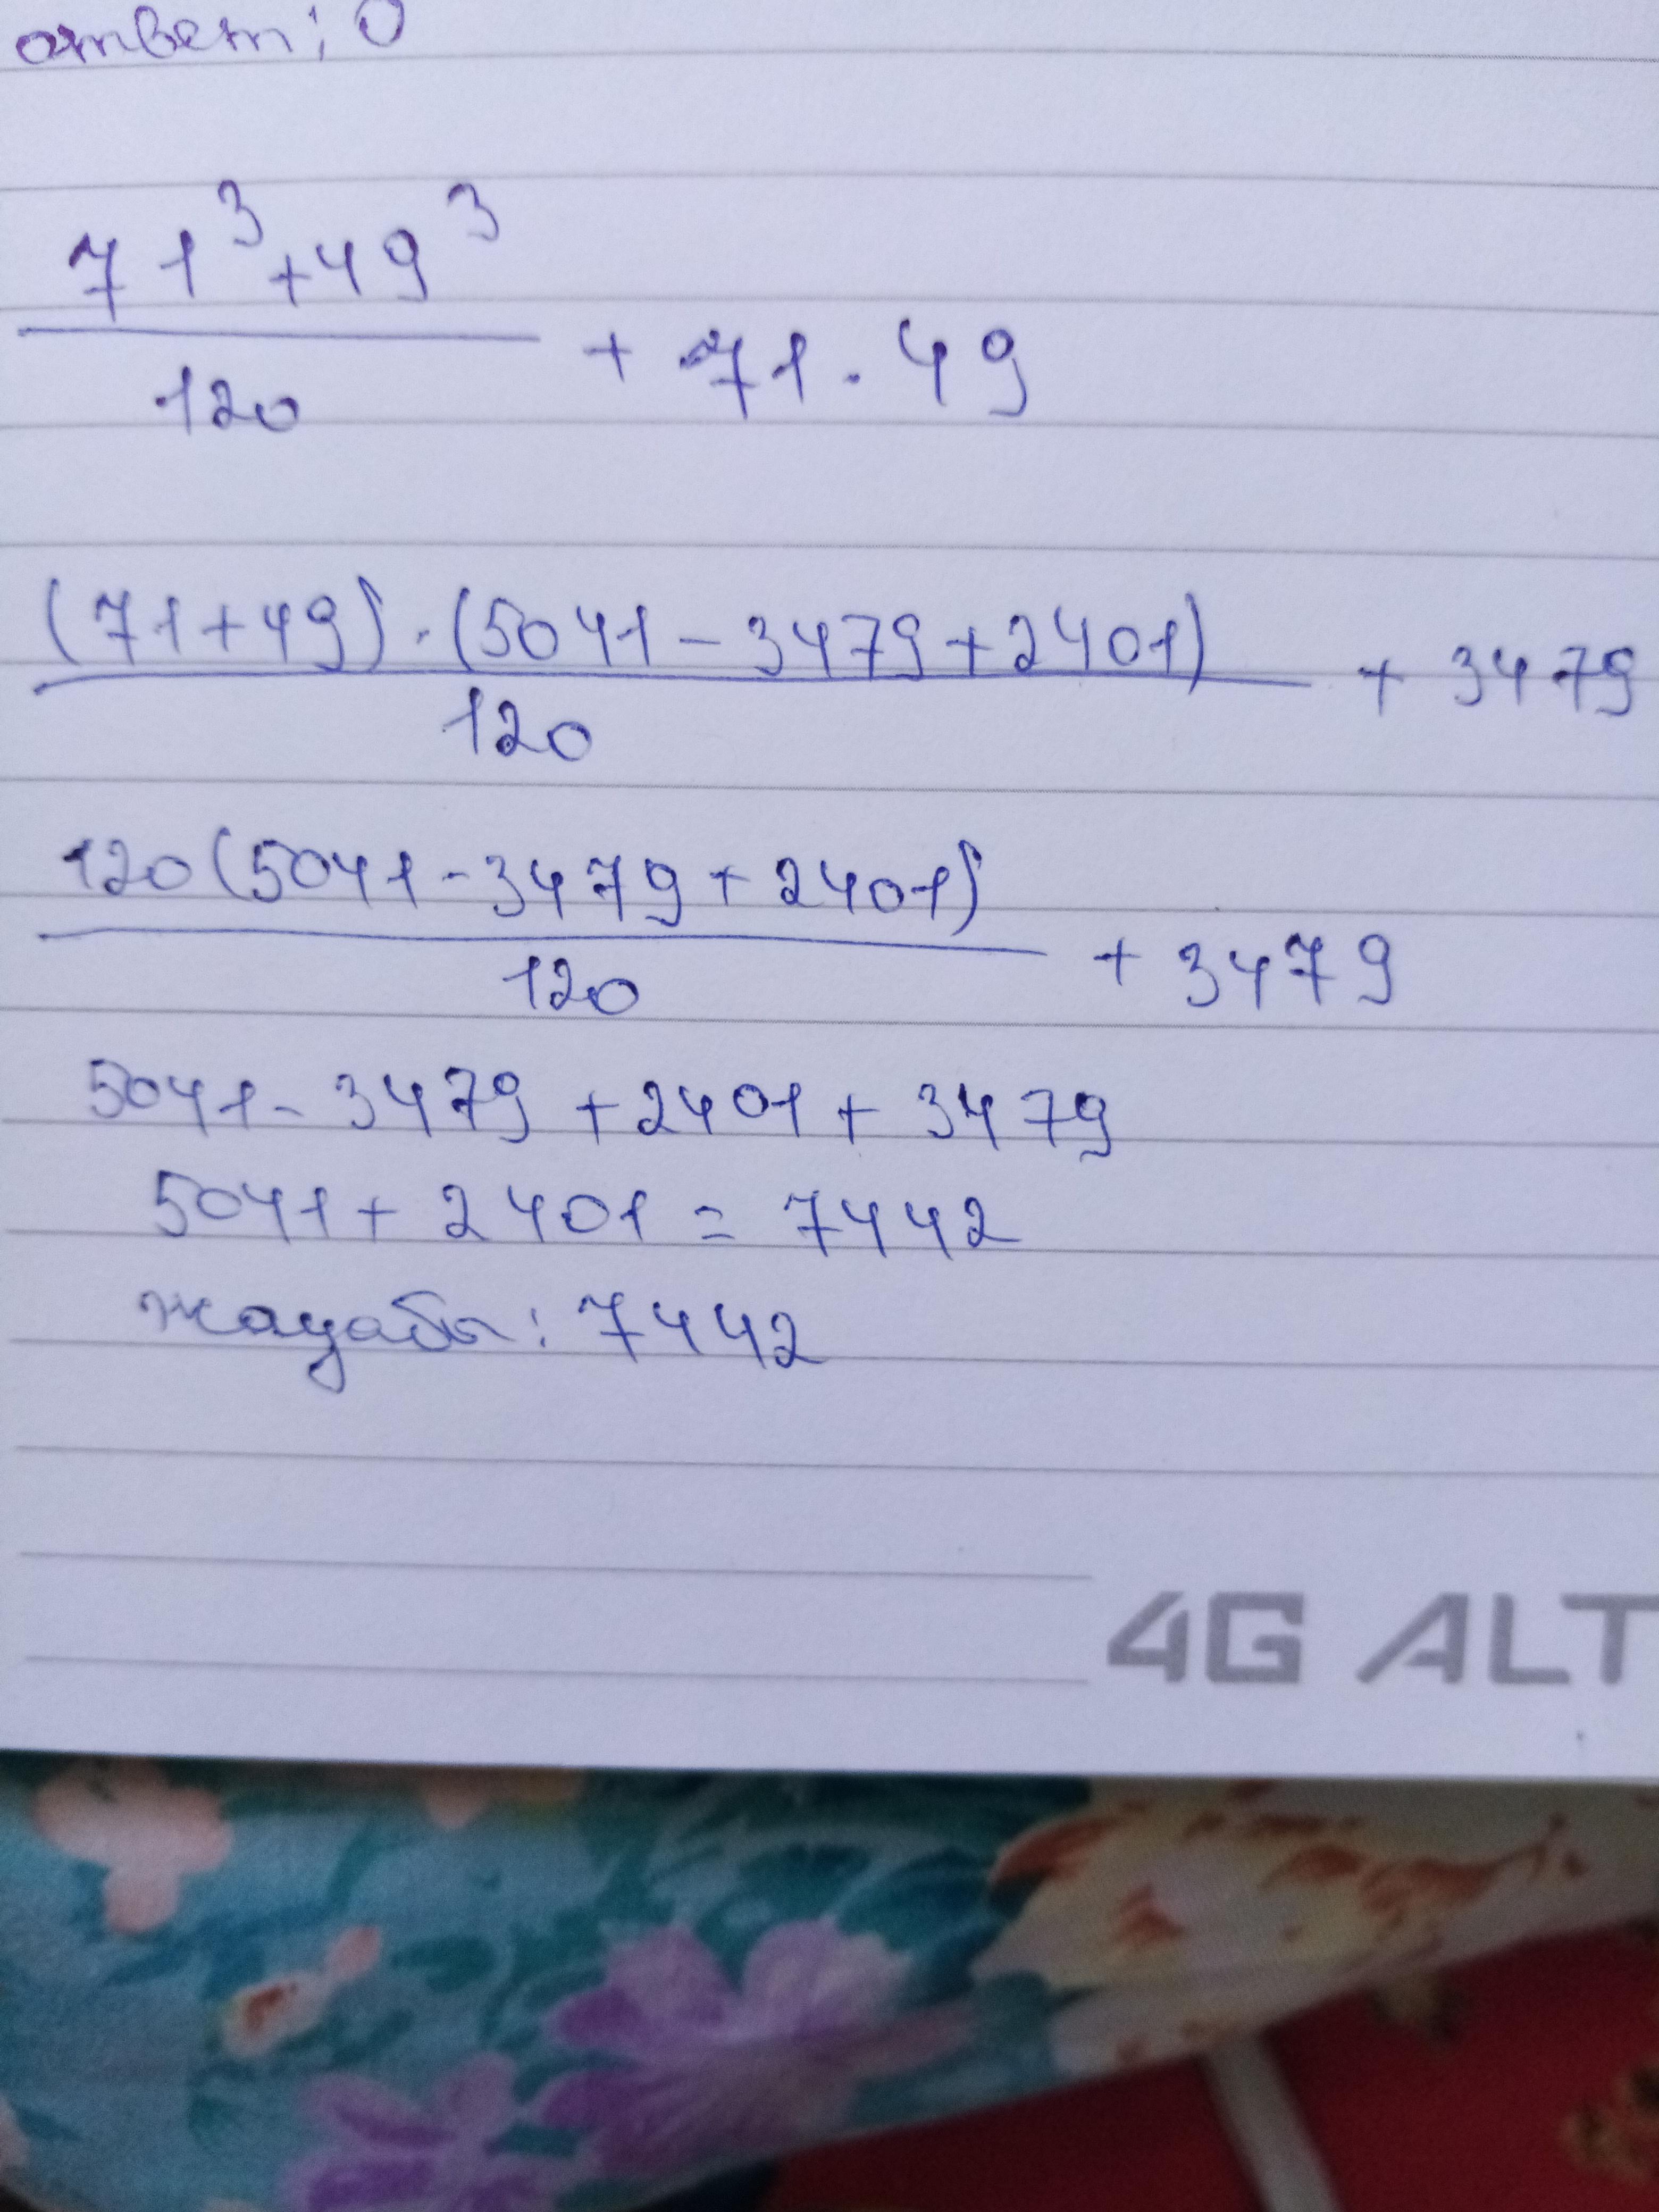 ответ: 0
71³+49³
120
+ 71 · 49
(71+49) · (5041 - 3479 + 2401)
120
+ 3479
120(5041 - 3479 + 2401)
120
+ 3479
5041 - 3479 + 2401 + 3479
5041 + 2401 = 7442
жауабы: 7442
4G ALT